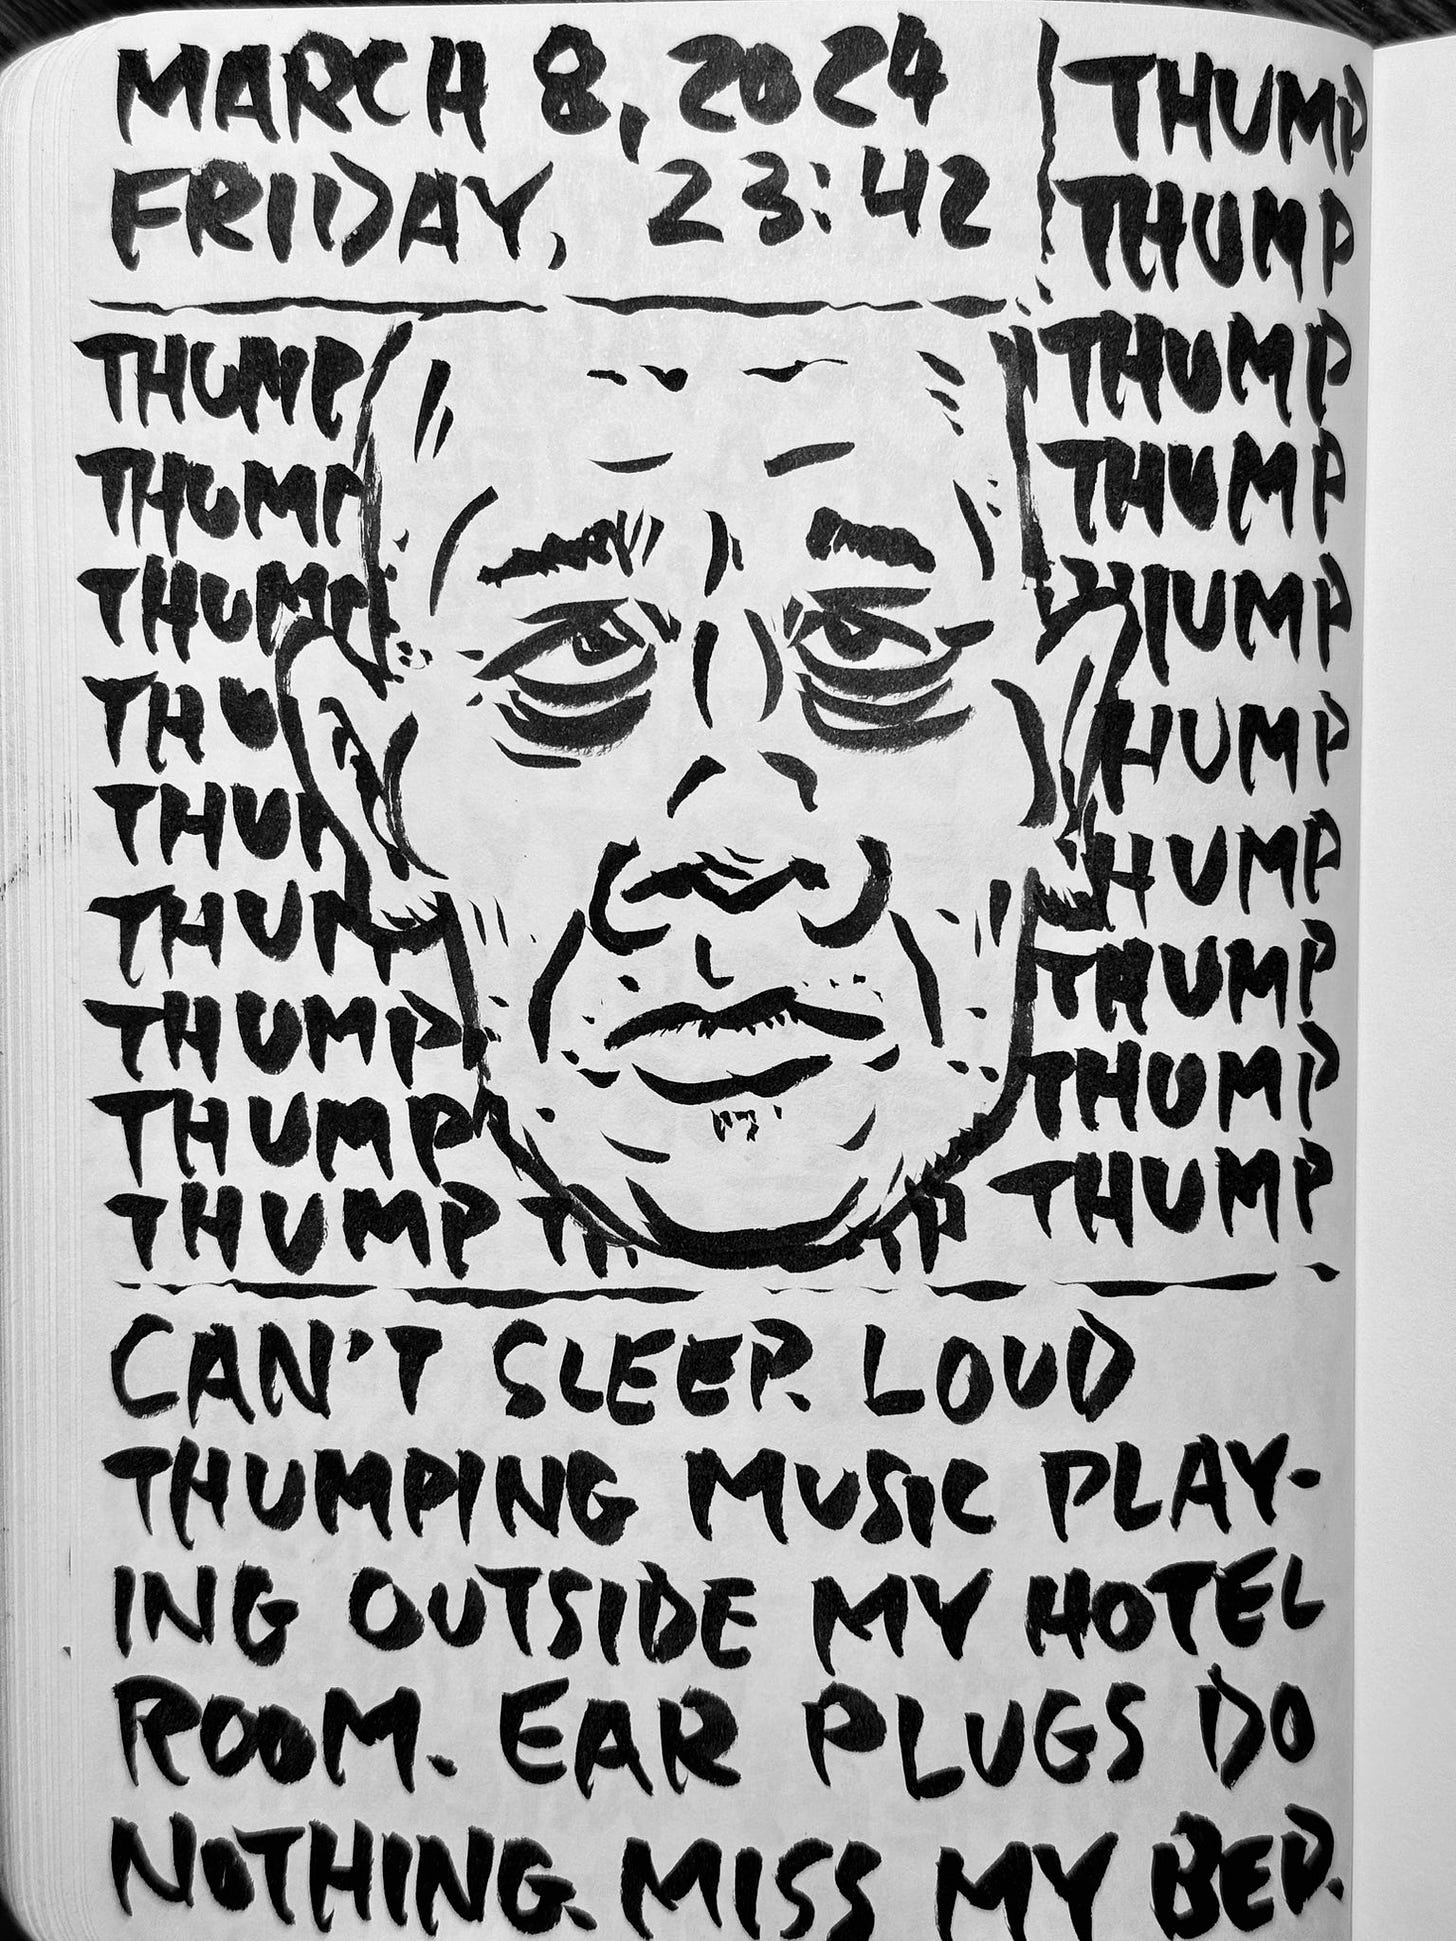 MARCH 8, 2024
FRIDAY, 23:42
THUMP
THUMP
THUMP
THUMP
THUMP
THU
THUM
THUM
THUMP
THUMP
THUMP T
THUMP
THUMP
THUMP
THUMP
HUMP
HUMP
HUMP
THUMP
THUMP
P THUMP
CAN'T SLEEP. LOUD
THUMPING MUSIC PLAY-
ING OUTSIDE MY HOTEL
ROOM. EAR PLUGS DO
NOTHING. MISS MY BED.